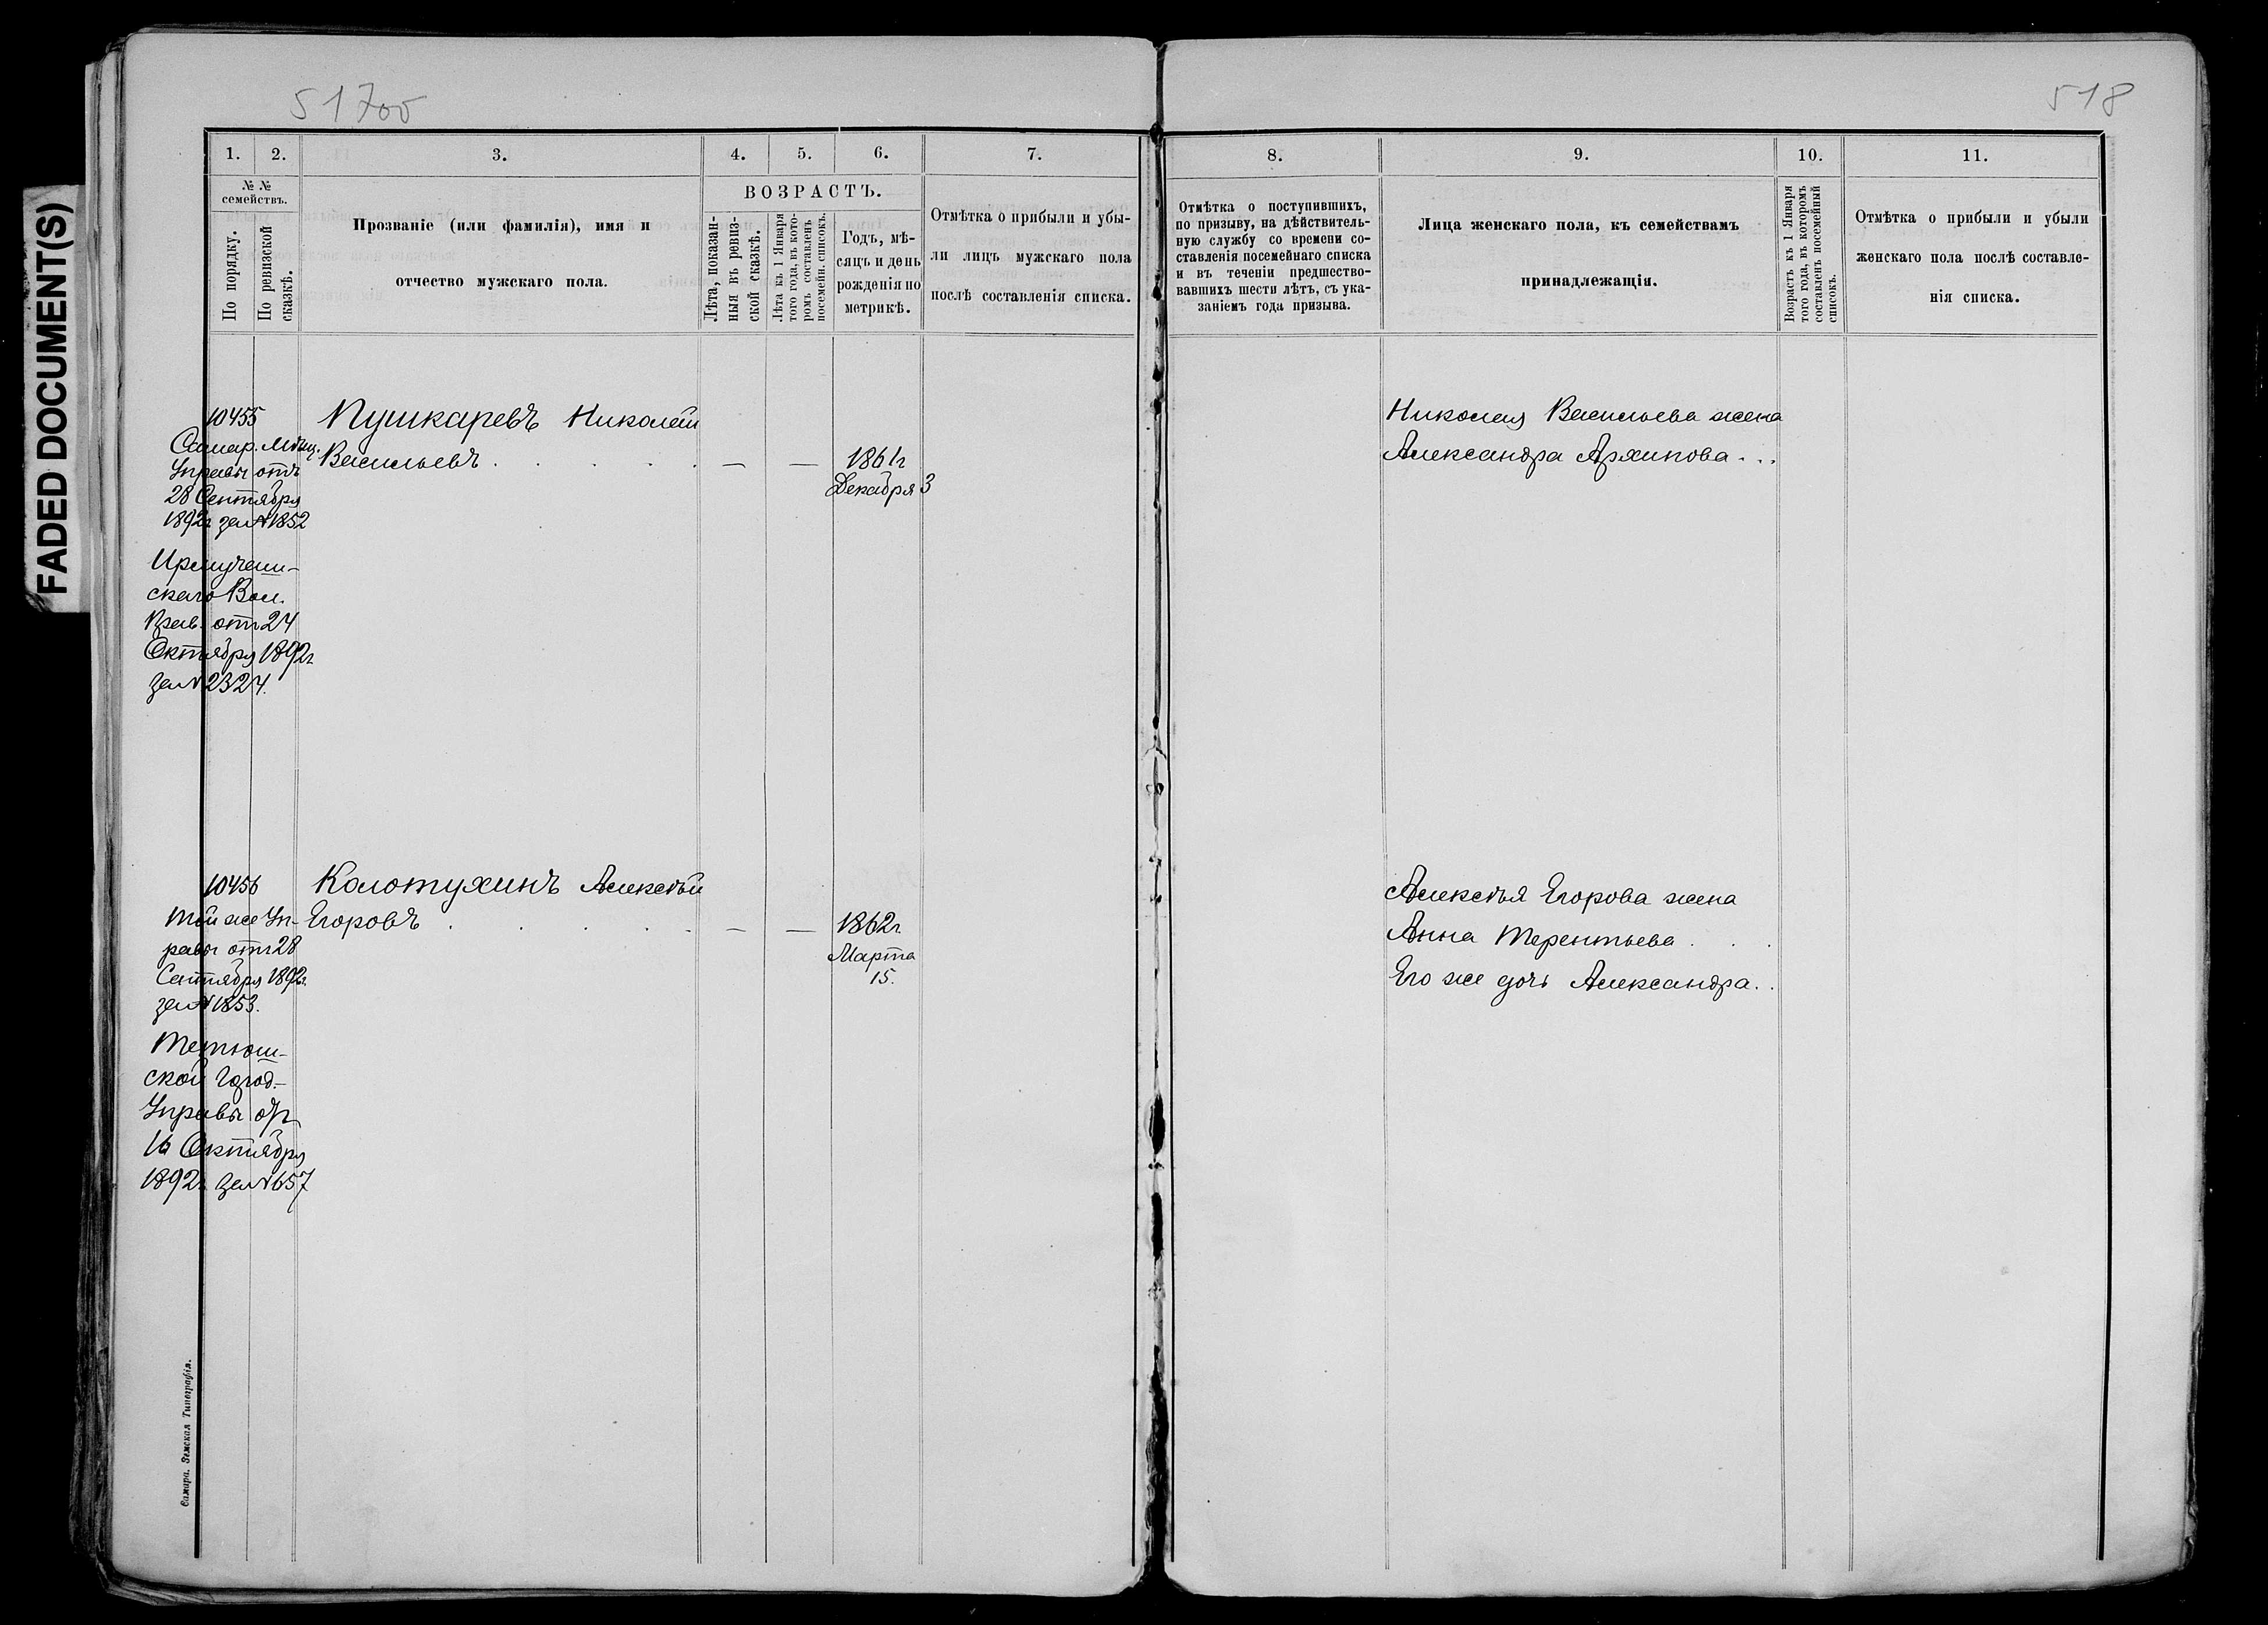 FADED DOCUMENT(S)
517об
518
1.
2.
3.
4.
5.
6.
7.
8.
9.
10.
11.
№ №
семействъ.
По порядку.
По ревизской
сказкѣ.
Прозваніе (или фамилія), имя и
отчество мужскаго пола.
ВОЗРАСТЪ.
Лѣта, показан-
ныя въ ревиз-
ской сказкѣ.
Лѣта къ 1 Января
того года, въ кото-
ромъ составленъ
посемейн. списокъ.
Годъ, мѣ-
сяцъ и день
рожденія по
метрикѣ.
Отмѣтка о прибыли и убы-
ли лицъ мужскаго пола
послѣ составленія списка.
Отмѣтка о поступившихъ,
по призыву, на дѣйствитель-
ную службу со времени со-
ставленія посемейнаго списка
и въ теченіи предшество-
вавшихъ шести лѣтъ, съ ука-
заніемъ года призыва.
Лица женскаго пола, къ семействамъ
принадлежащія.
Возрастъ къ 1 Января
того года, въ которомъ
составленъ посемейный
списокъ.
Отмѣтка о прибыли и убыли
женскаго пола послѣ составле-
нія списка.
10455
Самар. Мѣщ.
Управы отъ
28 Сентября
1892г за № 1852
скаго Вол.
Прав. отъ 24
Октября 1892г
за № 2324.
Пушкаревъ Николай
Васильевъ . . . . . — —
1861г
Декабря 3
Николая Васильева жена
Александра Архипова . . .
10456
Той же Уп-
равы отъ 28
Сентября 1892г.
за № 1853.
Тетюш-
ской Город-
Управы отъ
16 Октября
1892г. за № 657
Колотухинъ Алексѣй
Егоровъ . . . . . — —
1862г
Марта
15.
Алексѣя Егорова жена
Анна Терентьева . . .
Его же дочь Александра . .
Самара. Земская Типографія.